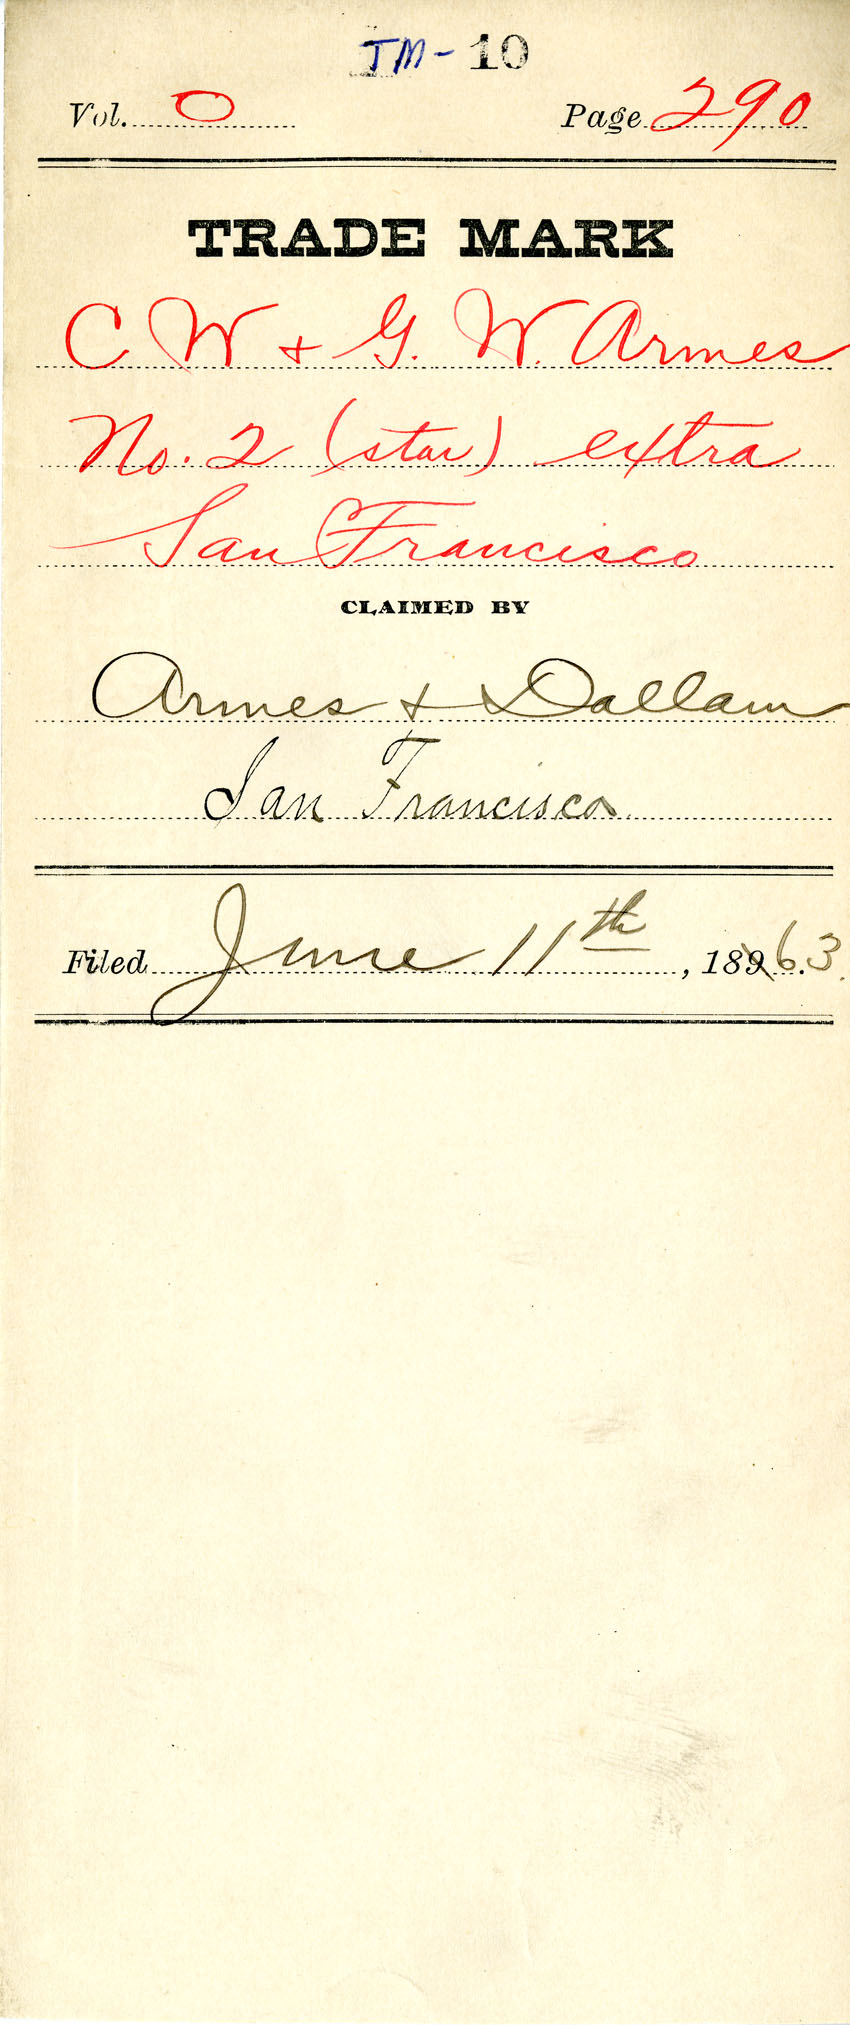 TM-10
Vol. 0 Page 290
TRADE MARK
C W + G. W. Armes
No. 2 (star) extra
San Francisco
CLAIMED BY
Armes + Dallam
San Francisco
Filed June 11th, 1863.